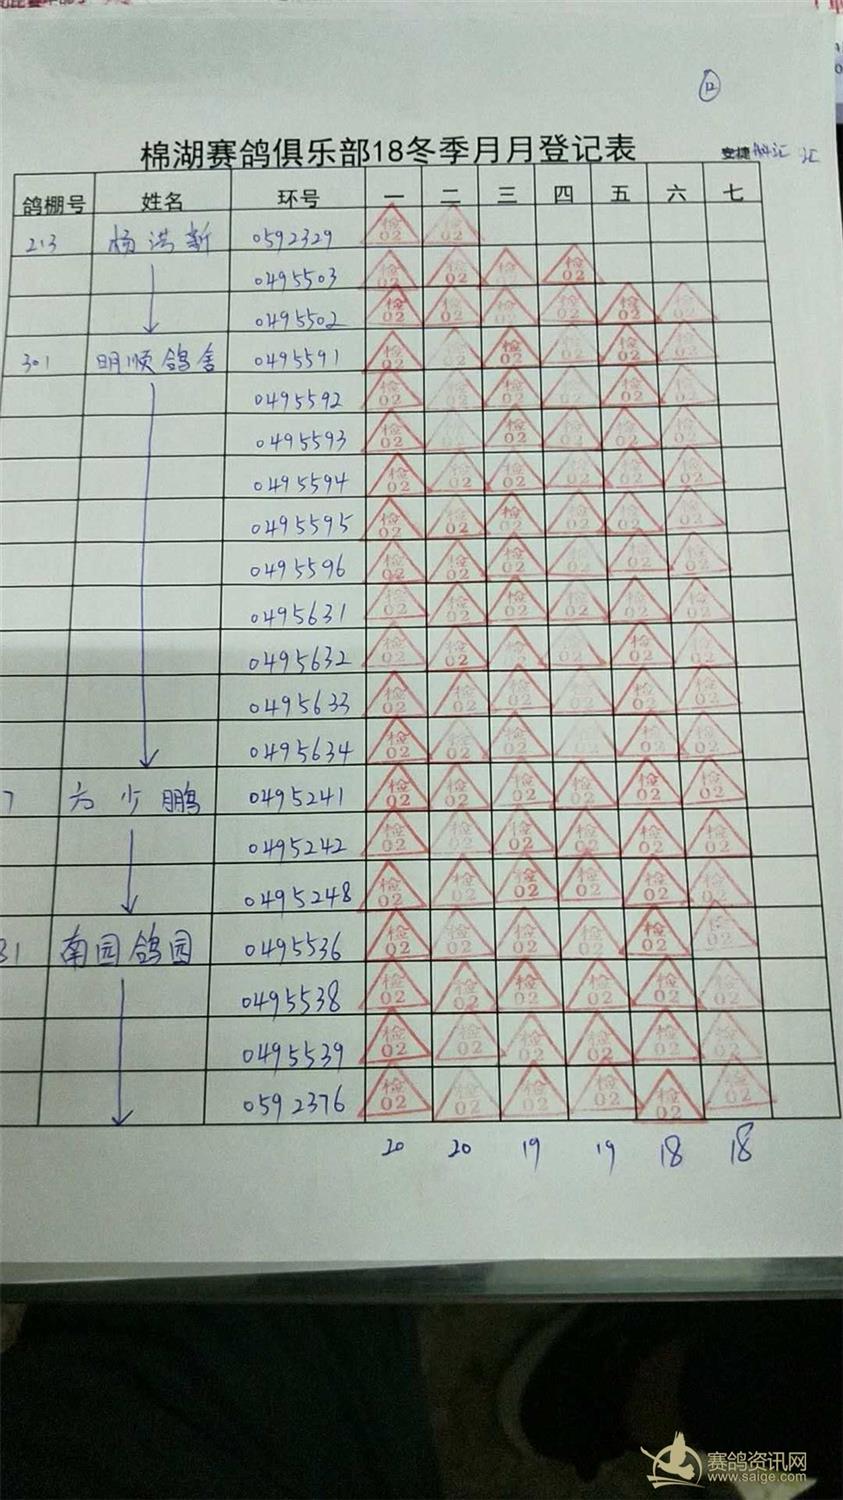 12
棉湖赛鸽俱乐部18冬季月月登记表
安捷
鸽棚号 姓名 环号 一 二 三 四 五 六 七
213 杨洪新 0592329 检02 检02
0495503 检02 检02 检02 检02
0495502 检02 检02 检02 检02 检02 检02
301 明顺鸽舍 0495591 检02 检02 检02 检02 检02 检02
0495592 检02 检02 检02 检02 检02 检02
0495593 检02 检02 检02 检02 检02 检02
0495594 检02 检02 检02 检02 检02 检02
0495595 检02 检02 检02 检02 检02 检02
0495596 检02 检02 检02 检02 检02 检02
0495631 检02 检02 检02 检02 检02 检02
0495632 检02 检02 检02 检02 检02 检02
0495633 检02 检02 检02 检02 检02 检02
0495634 检02 检02 检02 检02 检02 检02
7 方少鹏 0495241 检02 检02 检02 检02 检02 检02
0495242 检02 检02 检02 检02 检02 检02
0495248 检02 检02 检02 检02 检02 检02
31 南园鸽园 0495536 检02 检02 检02 检02 检02 检02
0495538 检02 检02 检02 检02 检02 检02
0495539 检02 检02 检02 检02 检02 检02
0592376 检02 检02 检02 检02 检02 检02
20 20 19 19 18 18
赛鸽资讯网
www.saige.com